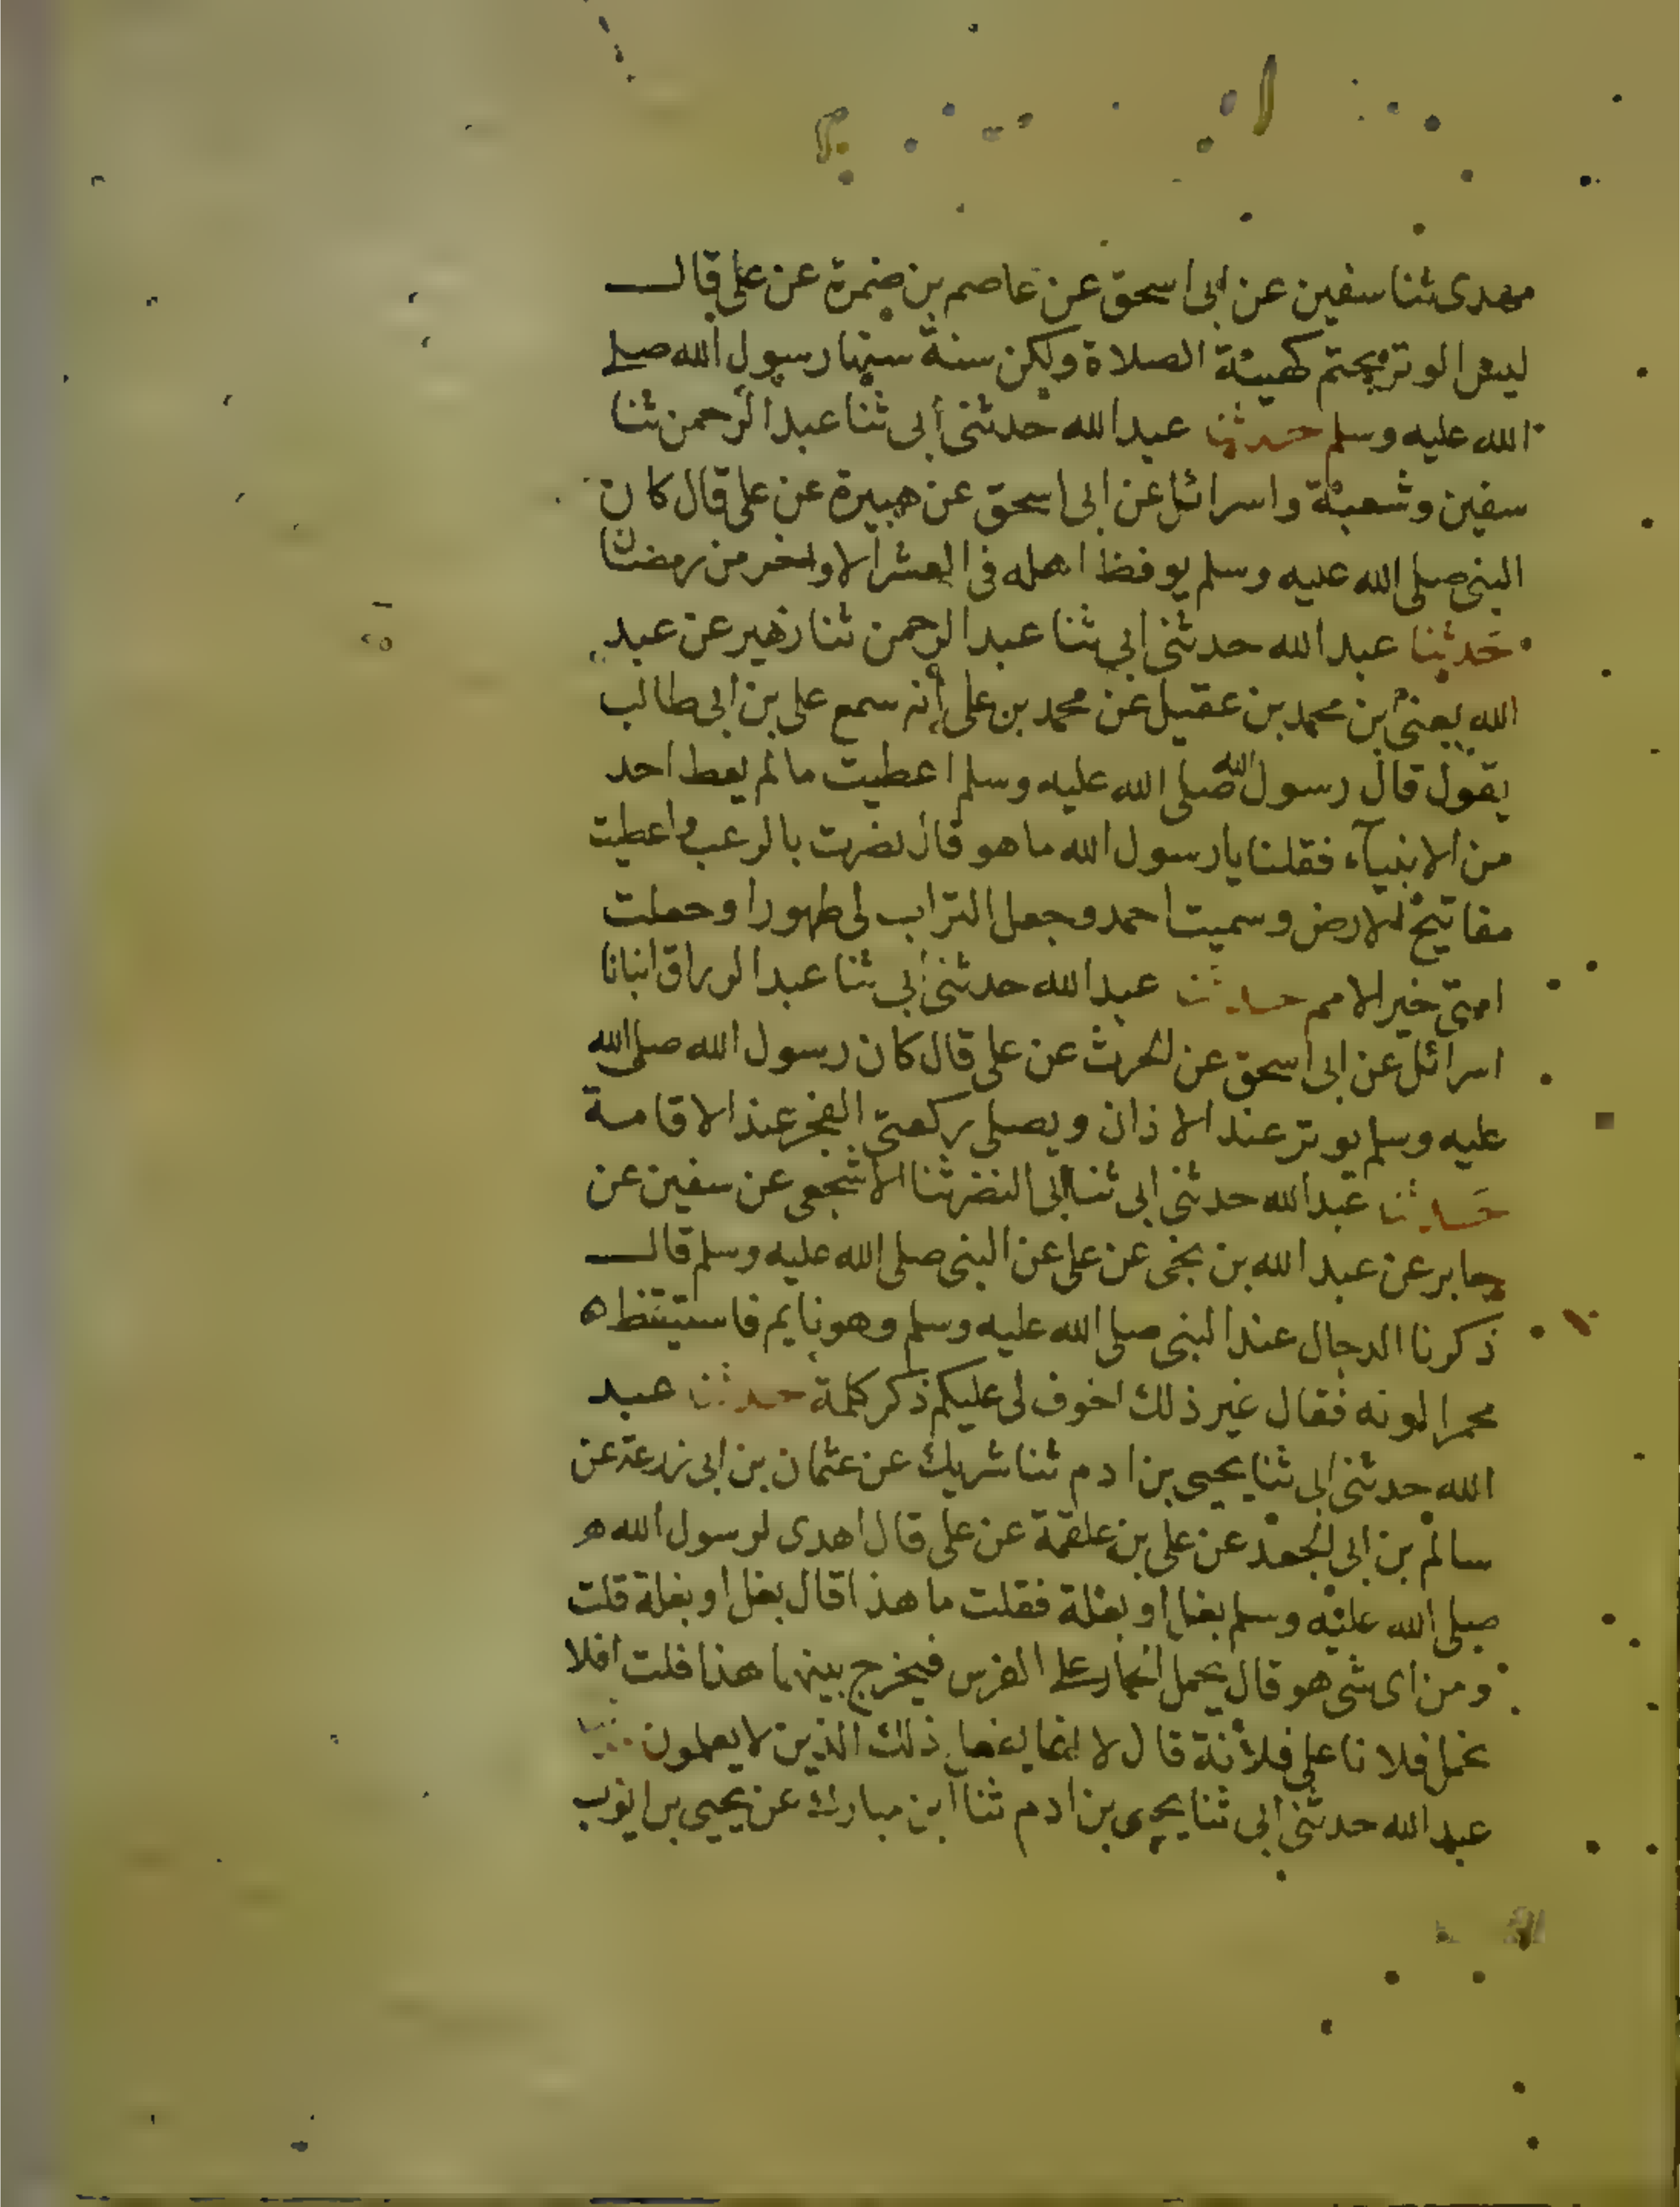 مهدى ثنا سفين عن ابى اسحق عن عاصم بن ضمرة عن على قال
ليس الوتر بحتم كهيئة الصلاة ولكن سنة سنها رسول الله صلى
الله عليه وسلم حدثنا عبد الله حدثنى أبى ثنا عبد الرحمن ثنا
سفين وشعبة واسرائل عن ابى اسحق عن هبيرة عن على قال كان
النبى صلى الله عليه وسلم يوقظ اهله فى العشر الاواخر من رمضان
حدثنا عبد الله حدثنى ابى ثنا عبد الرحمن ثنا زهير عن عبد
الله يعنى بن محمد بن عقيل عن محمد بن على أنه سمع على بن ابى طالب
يقول قال رسول الله صلى الله عليه وسلم اعطيت ما لم يعط احد
من الانبيآء فقلنا يا رسول الله ما هو قال نصرت بالرعب واعطيت
مفاتيح الارض وسميت احمد وجعل التراب لى طهورا وجعلت
امتى خير الامم حدثنا عبد الله حدثنى أبى ثنا عبد الرزاق انبانا
اسرائل عن ابى اسحق عن الحرث عن على قال كان رسول الله صلى الله
عليه وسلم يوتر عند الاذان ويصلى ركعتى الفجر عند الاقامة
حدثنا عبد الله حدثنى ابى ثنا ابى النضر ثنا الاشجعى عن سفين عن
جابر عن عبد الله بن نجى عن على عن النبى صلى الله عليه وسلم قال
ذكرنا الدجال عند النبى صلى الله عليه وسلم وهو نايم فاستيقظ ه
محمرا لونه فقال غير ذلك اخوف لى عليكم ذكر كلمة حدثنا عبد
الله حدثنى ابى ثنا يحيى بن ادم ثنا شريك عن عثمان بن ابى زرعة عن
سالم بن ابى الجعد عن على بن علقمة عن على قال اهدى لرسول الله ه
صلى الله عليه وسلم بغل او بغلة فقلت ما هذا قال بغل او بغلة قلت
ومن اى شى هو قال يحمل الحمار على الفرس فيخرج بينهما هذا قلت افلا
نحمل فلانا على فلانة قال لا انما يفعل ذلك الذين لا يعلمون
عبد الله حدثنى ابى ثنا يحيى بن ادم ثنا ابن مبارك عن يحيى بن ايوب